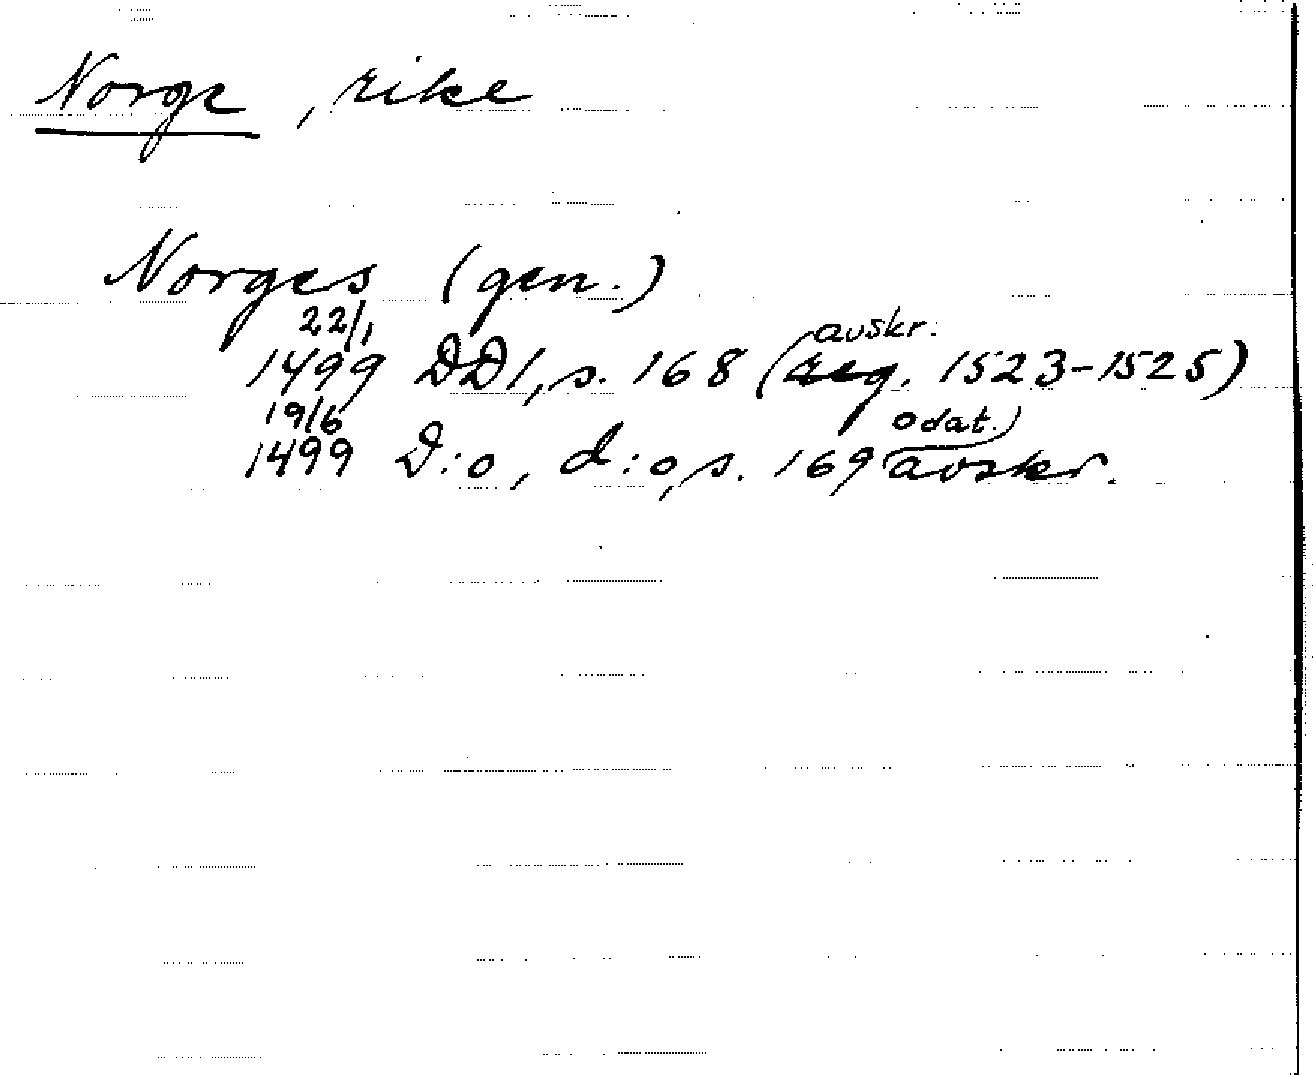 Norge, rike
Norges (gen.)
22/1
1499 DD1, s. 168 (avskr. 1523-1525)
19/6
1499 D:o, d:o, s. 169 (odat.) avskr.